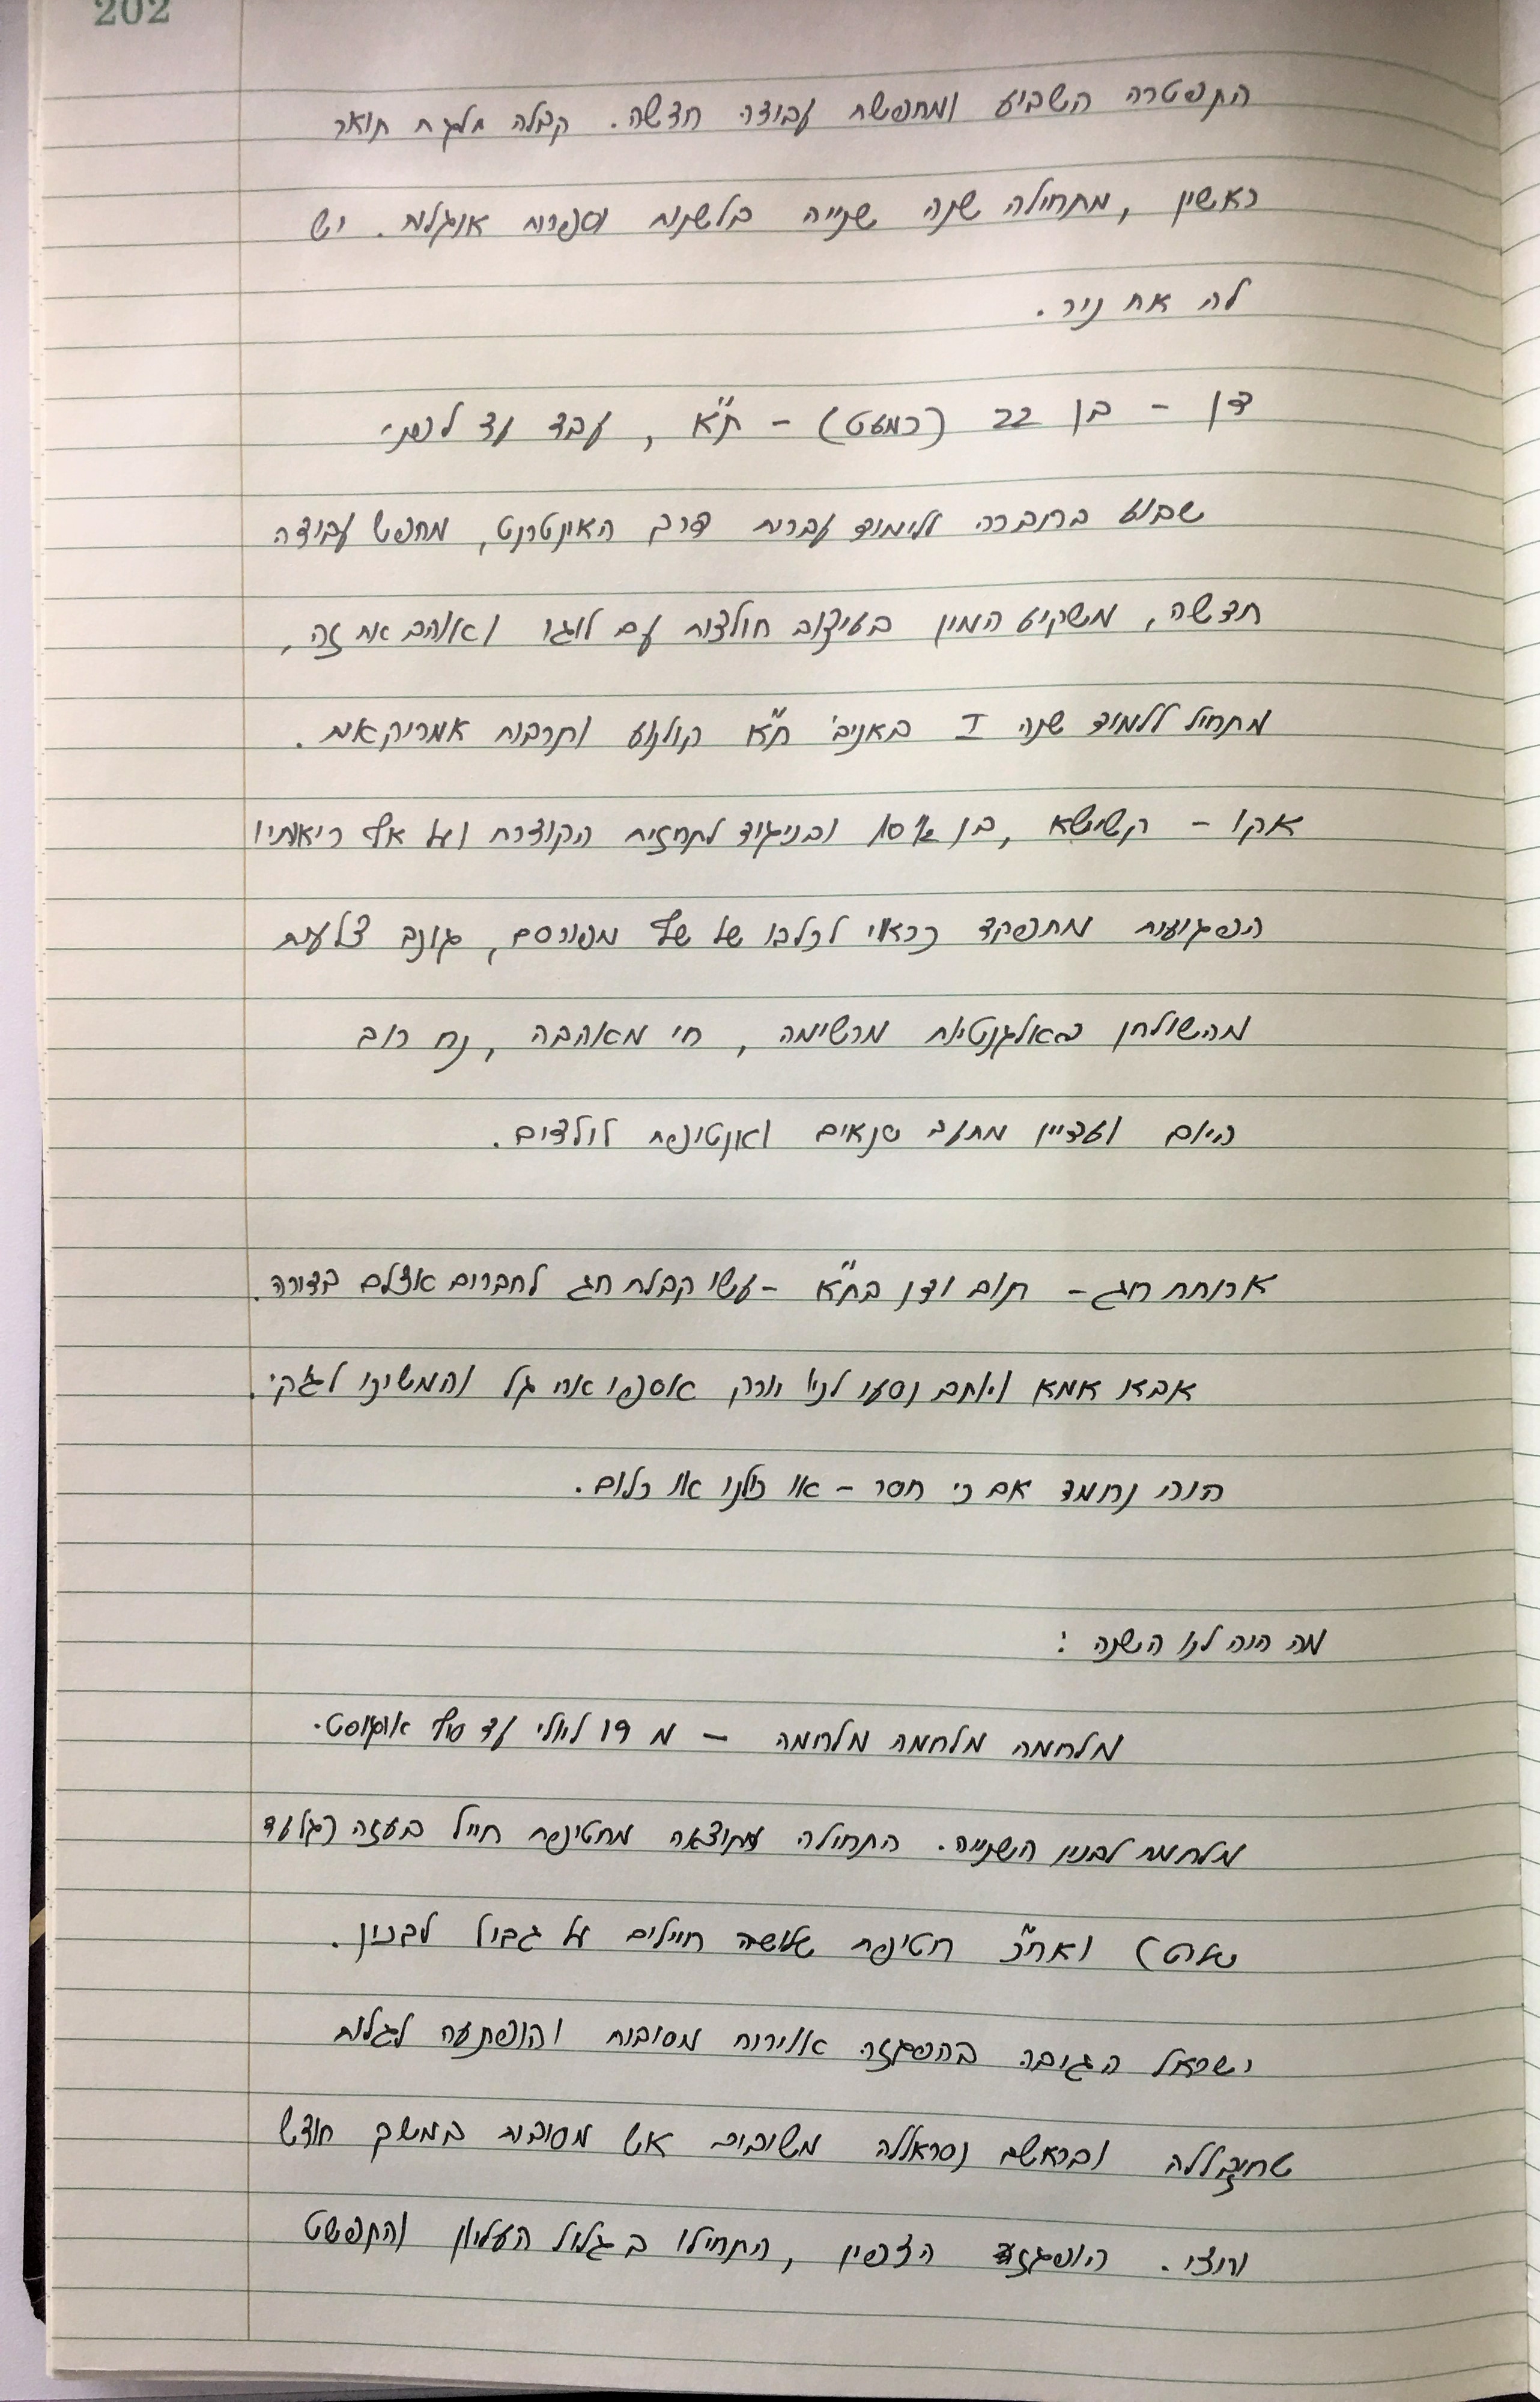 202
התפטרה השבוע ומחפשת עבודה חדשה. קבלה מלגת תואר
ראשון, מתחילה שנה שנייה בלשנות וספרות אנגלית. יש
לה אח ניר.
דן - בן 22 (כמעט) - ת"א, עבד עד לפני
שבוע בחברה ללימוד עברית דרך האינטרנט, מחפש עבודה
חדשה, משקיע המון בעיצוב חולצות עם לוגו ואוהב את זה,
מתחיל ללמוד שנה I באוניב' ת"א קולנוע ותרבות אמריקאית.
אקו - קשישא, בן 10 ובניגוד לתחזית הקודרת ועל אף ריאותיו
הפגועות מתפקד כראוי לכלבו של שף מפורסם, גונב צלעות
מהשולחן באלגנטיות מרשימה, חי מאהבה, נח רוב
היום ועדיין מתעב שנאים ואנטיפת לילדים.
ארוחת חג - תום ודן בת"א - עשו קבלת חג לחברים אצלם בדירה.
אבא אמא ויותם נסעו לניו יורק אספו את גל והמשיכו לג'קי.
היה נחמד אם כי חסר - או כולנו או כלום.
מה היה לנו השנה:
מלחמה מלחמה מלחמה - מ 19 ליולי עד סוף אוגוסט.
מלחמת לבנון השנייה. התחילה כתוצאה מחטיפת חייל בעזה (גלעד
שליט) ואח"כ חטיפת שלושה חיילים על גבול לבנון.
ישראל הגיבה בהפגזה אווירית מסיבית והופתעה לגלות
שחיזבללה ובראשם נסראללה משיבים אש מסיבית במשך חודש
וחצי. הופגזה הצפון, התחילו בגליל העליון והתפשט